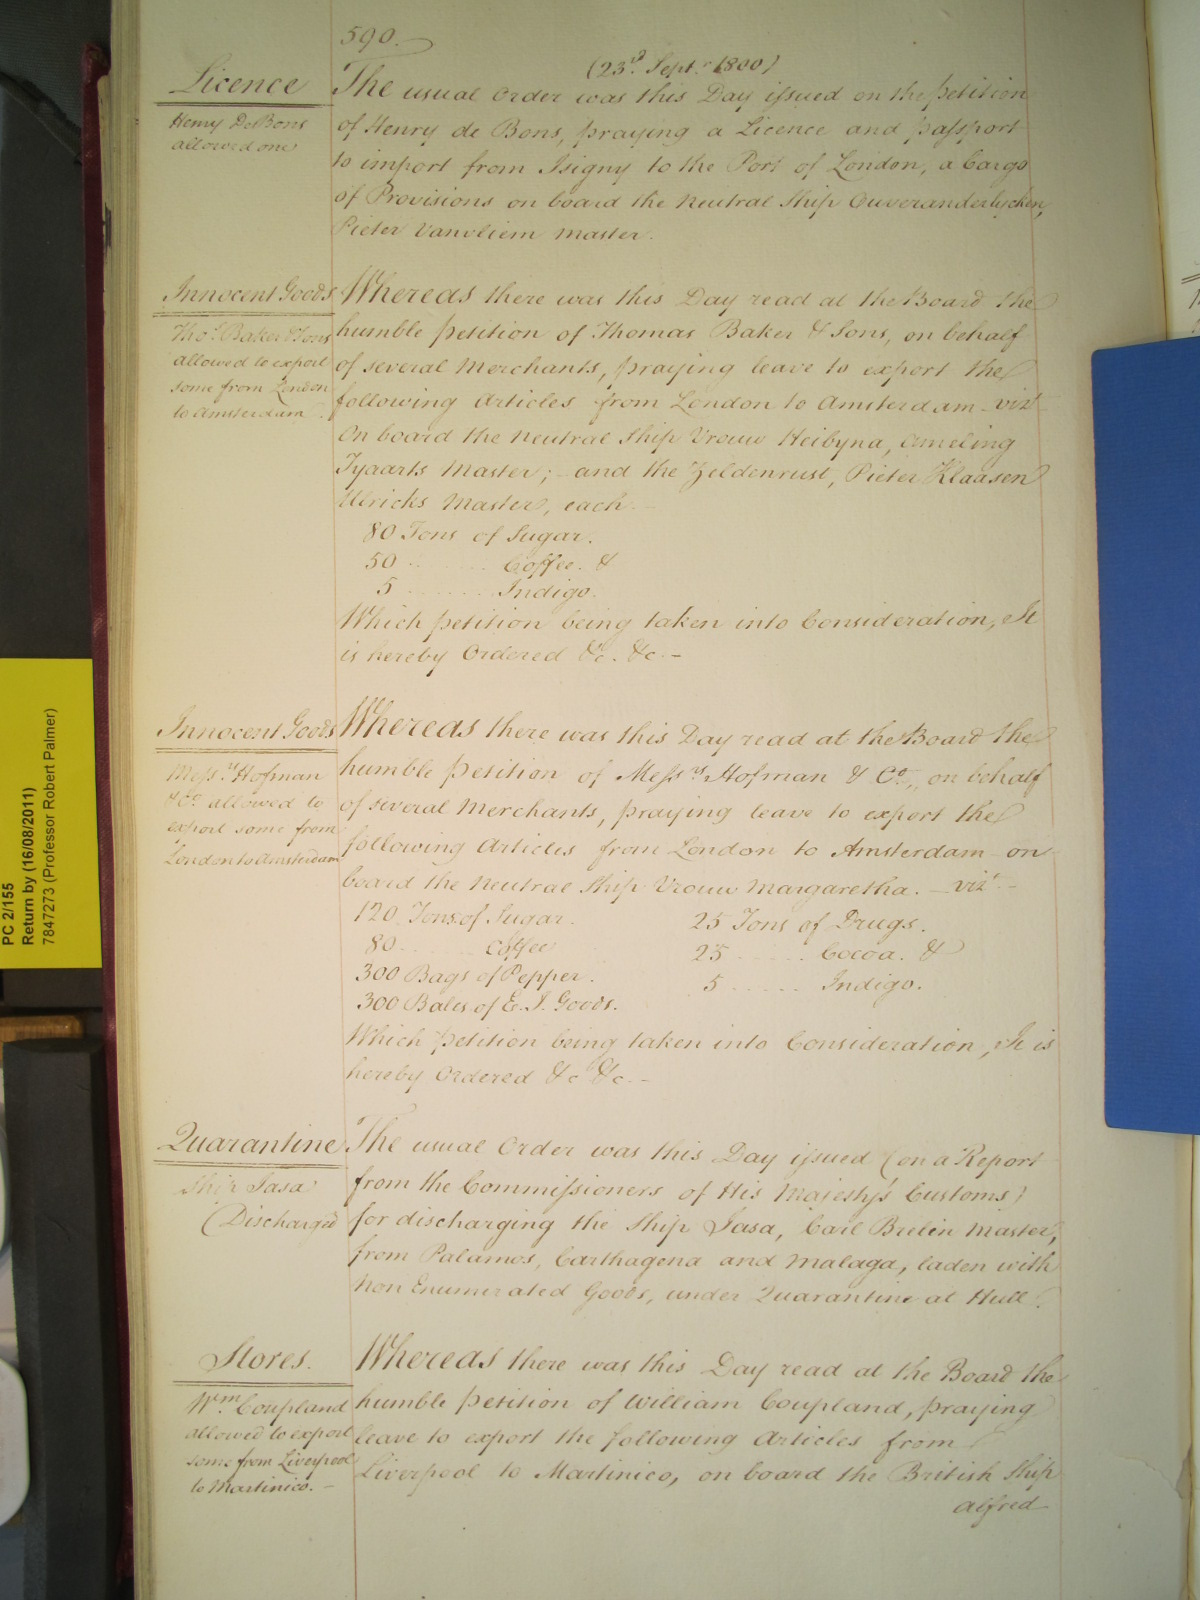 590.
(23rd Septr 1800)
Licence
Henry De Bons
allowed one
The usual Order was this Day issued on the petition
of Henry de Bons, praying a Licence and passport
to import from Isigny to the Port of London, a Cargo
of Provisions on board the Neutral Ship Ouveranderlycken,
Pieter Vanvliem Master.
Innocent Goods
Thos. Baker & Sons
allowed to export
some from London
to Amsterdam.
Whereas there was this Day read at the Board the
humble petition of Thomas Baker & Sons, on behalf
of several Merchants, praying leave to export the
following Articles from London to Amsterdam - vizt
On board the Neutral Ship Vrouw Heibyna, Ameling
Tyaarts Master; - and the Zeldenrust, Pieter Klaasen
Ulricks Master, each -
80 Tons of Sugar.
50 ........ Coffee. &
5 ........ Indigo.
Which petition being taken into Consideration, It
is hereby Ordered &c. &c. -
Innocent Goods
Messrs Hofman
& Co. allowed to
export some from
London to Amsterdam
Whereas there was this Day read at the Board the
humble petition of Messrs Hofman & Co., on behalf
of several Merchants, praying leave to export the
following Articles from London to Amsterdam - on
board the Neutral Ship Vrouw Margaretha. - vizt. -
120 Tons of Sugar. 25 Tons of Drugs.
80 ...... Coffee 25 ...... Cocoa. &
300 Bags of Pepper. 5 ...... Indigo.
300 Bales of E. I. Goods.
Which petition being taken into Consideration, It is
hereby Ordered &c &c. -
Quarantine
Ship Jasa
(Discharged
The usual Order was this Day issued (on a Report
from the Commissioners of His Majesty's Customs)
for discharging the Ship Jasa, Carl Brelin Master,
from Palamos, Carthagena and Malaga, laden with
Non Enumerated Goods, under Quarantine at Hull.
Stores.
Wm. Coupland
allowed to export
some from Liverpool
to Martinico. -
Whereas there was this Day read at the Board the
humble petition of William Coupland, praying
leave to export the following Articles from
Liverpool to Martinico, on board the British Ship
Alfred
PC 2/155
Return by (16/08/2011)
7847273 (Professor Robert Palmer)